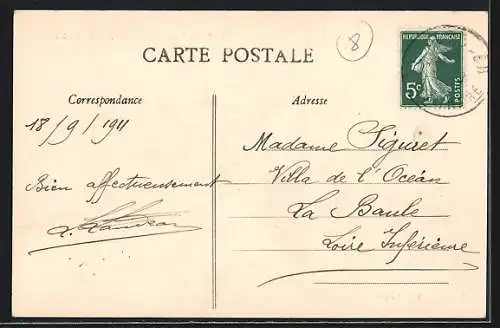 8
CARTE POSTALE
REPUBLIQUE FRANÇAISE
5c POSTES
Correspondance
Adresse
18/9/1911
Madame Siguret
Bien affectueusement
Villa de l'Océan
La Baule
Loire Inférieure